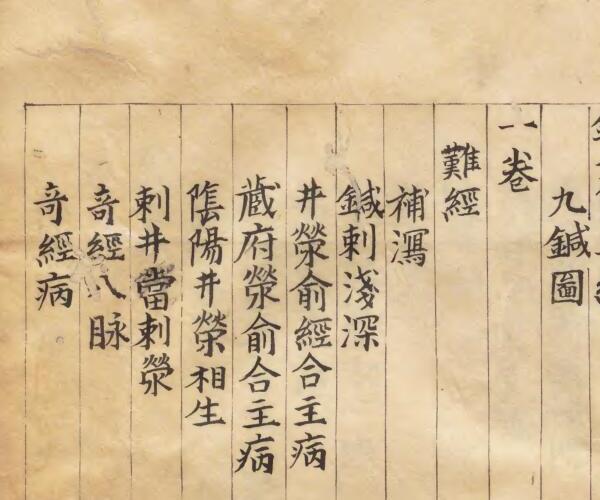 九鍼圖
一卷
難經
補瀉
鍼刺淺深
井滎俞經合主病
藏府滎俞合主病
陰陽井榮相生
刺井當刺滎
奇經八脉
奇經病